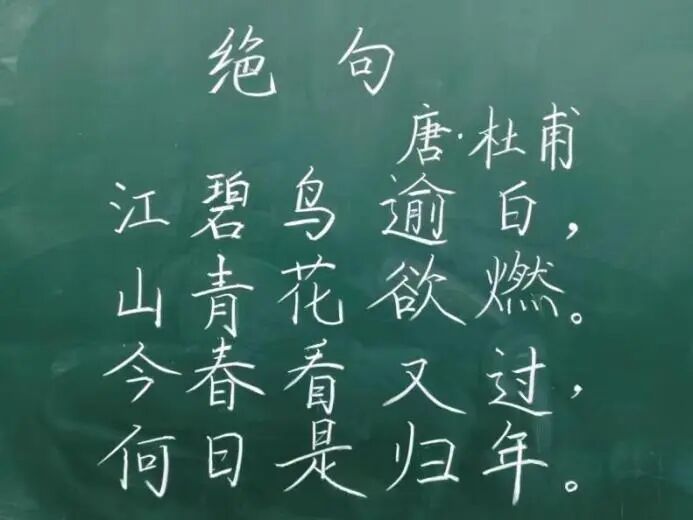 绝句
唐·杜甫
江碧鸟逾白，
山青花欲燃。
今春看又过，
何日是归年。